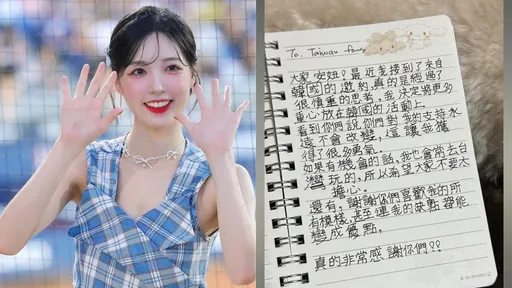 To. Taiwan fans
大家 安妞！最近我接到了來自
韓國的邀約,真的是經過了
很慎重的思考,我決定將更多
重心放在韓國的活動上
看到你們說你們對我的支持永
遠不會改變，這讓我獲
得了很多勇氣.
如果有機會的話,我也會常去台
灣玩的,所以希望大家不要太
擔心.
還有,謝謝你們喜歡我的所
有模樣,甚至連我的缺點都能
變成優點.
真的非常感謝你們!!